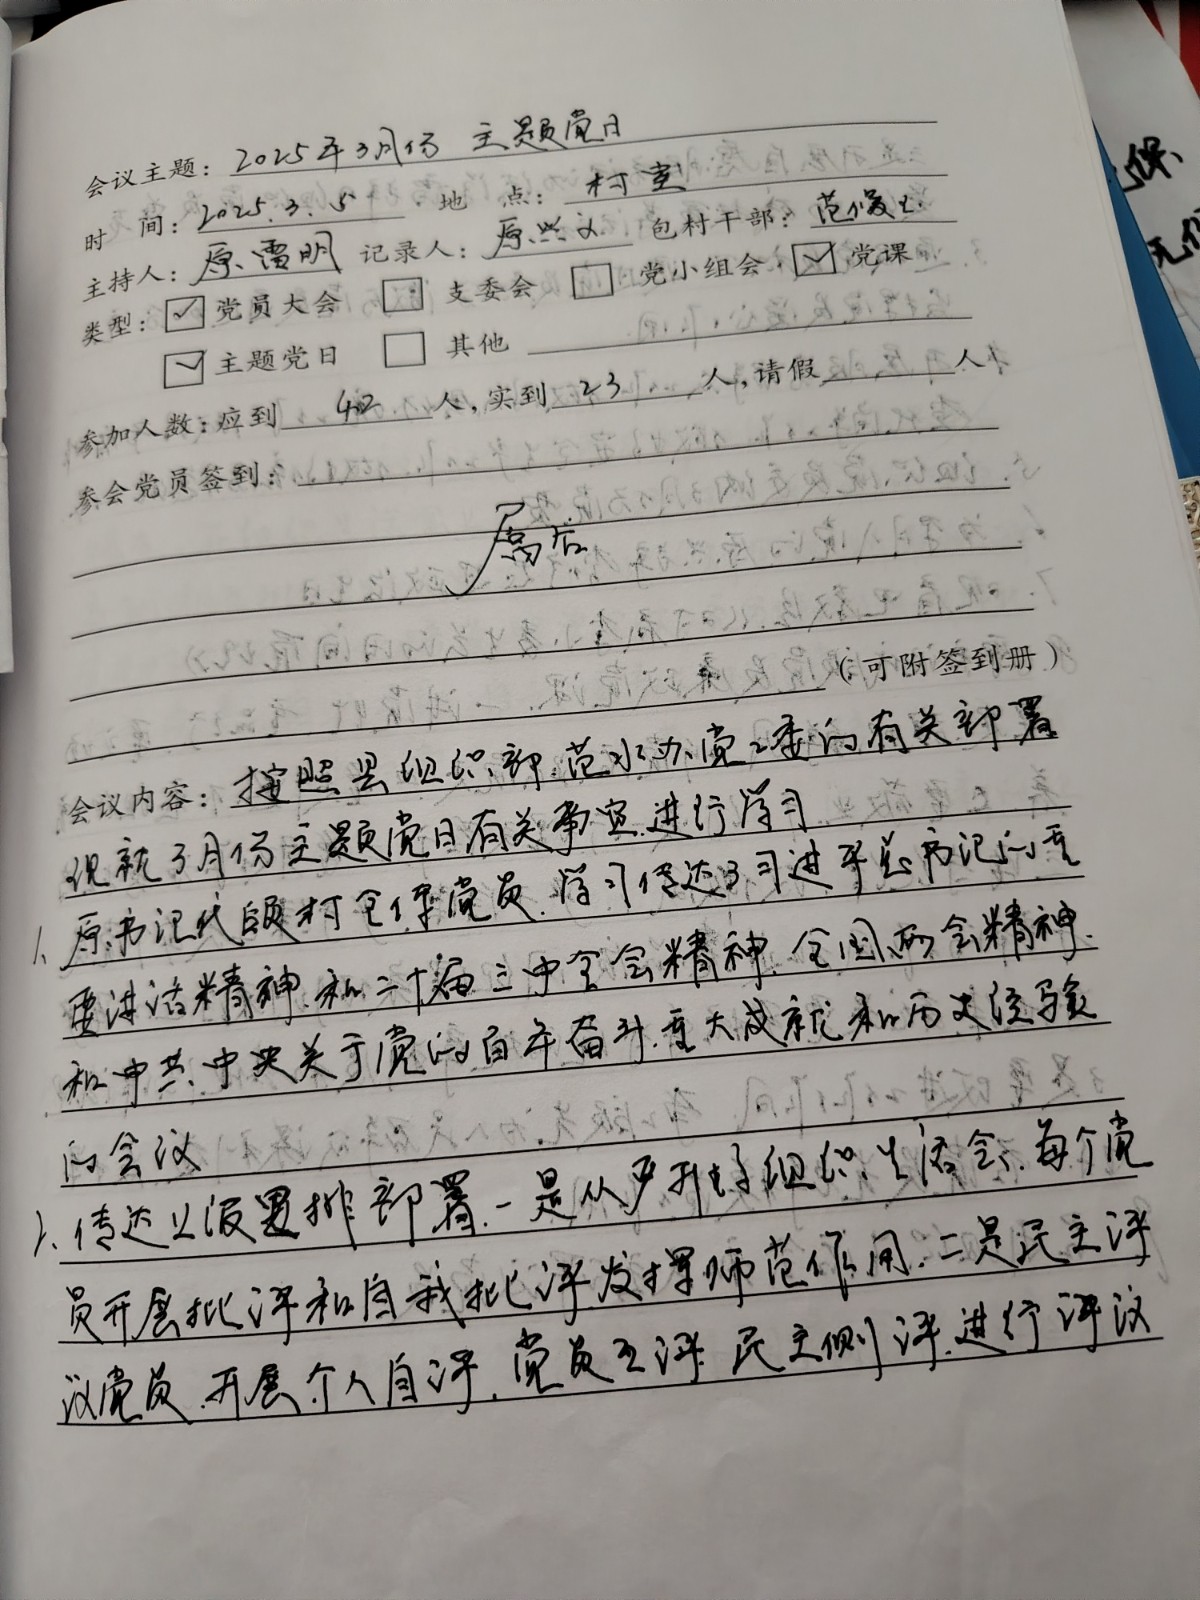 会议主题：2025年3月份 主题党日
时 间：2025.3.5 地 点：村室
主持人：原雷明 记录人：原兴文 包村干部：范俊
类型：☑党员大会 □支委会 □党小组会 ☑党课
☑主题党日 □其他
参加人数：应到 42 人，实到 23 人，请假 人
参会党员签到：
附后
（可附签到册）
会议内容：按照县组织部、范水办党工委的有关部署
现就3月份主题党日有关事宜进行学习
1、原书记代领村全体党员、学习传达了习进平总书记的重
要讲话精神、和二十届三中全会精神、全国两会精神、
和中共中央关于党的百年奋斗、重大成就和历史经验
的会议
2、传达上级置排部署、一是从严开好组织生活会、每个党
员开展批评和自我批评发挥师范作用、二是民主评
议党员、开展个人自评、党员互评、民主侧评、进行评议